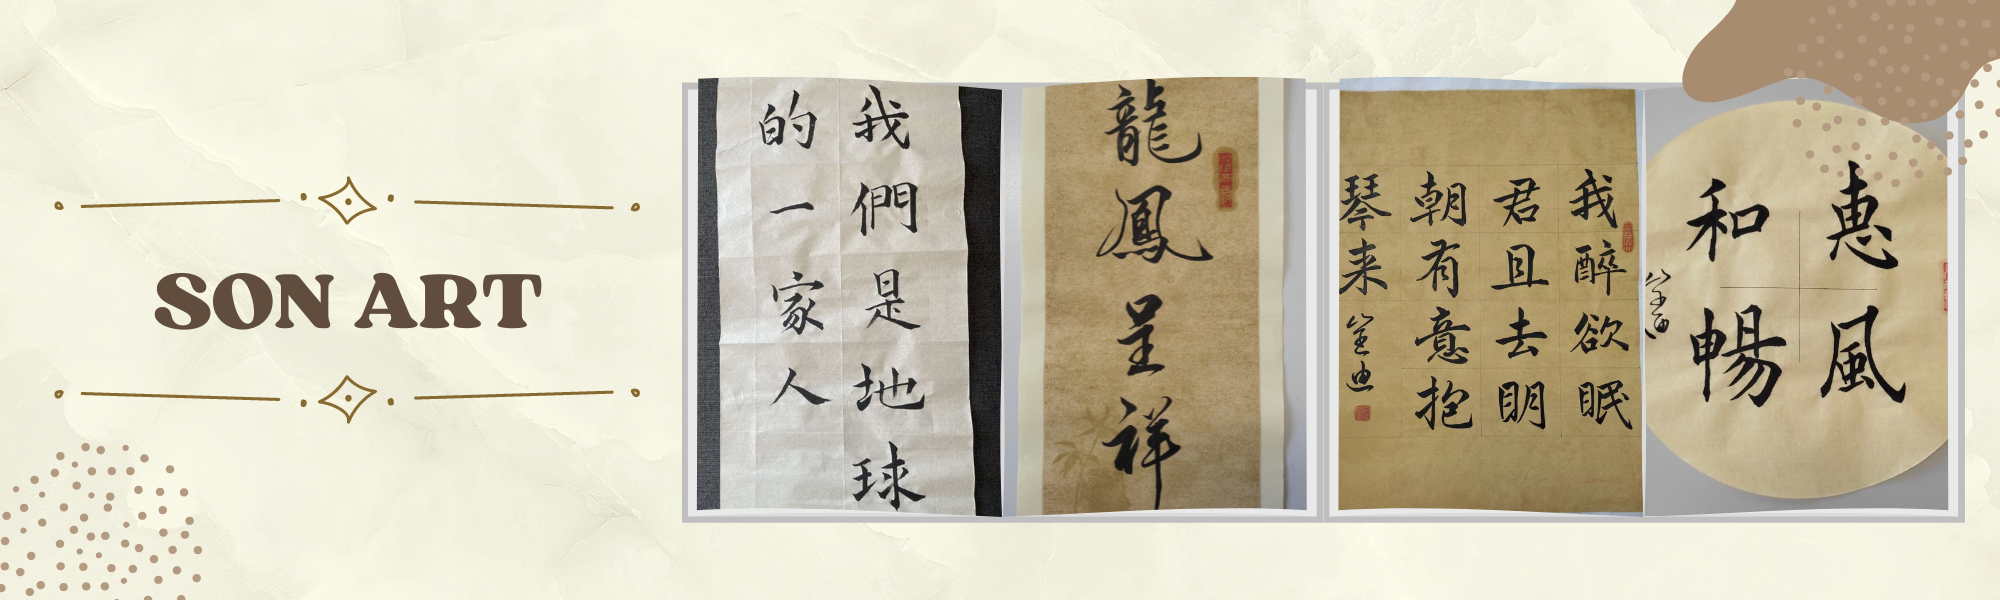 SON ART
我們是地球
的一家人
龍鳳呈祥
我醉欲眠
君且去明
朝有意抱
琴来
惠風
和暢